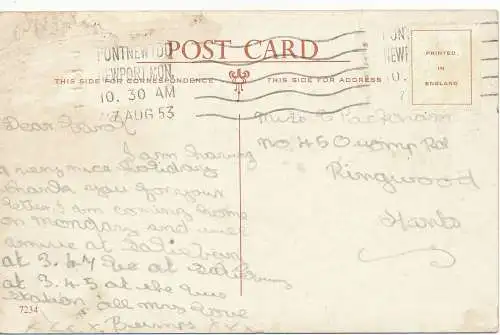 PONTNEWYDD
NEWPORT MON.
10.30 AM
7 AUG 53
POST CARD
THIS SIDE FOR CORRESPONDENCE
THIS SIDE FOR ADDRESS
PRINTED
IN
ENGLAND
Dear
I am having
a very nice holiday
thank you for your
letter I am coming home
on Monday and will
arrive at
at 3.47 at
at 3.45 at the
station all my love
Bumps x x x
Miss C Packham
No. 45 Rd
Ringwood
Hants
7234